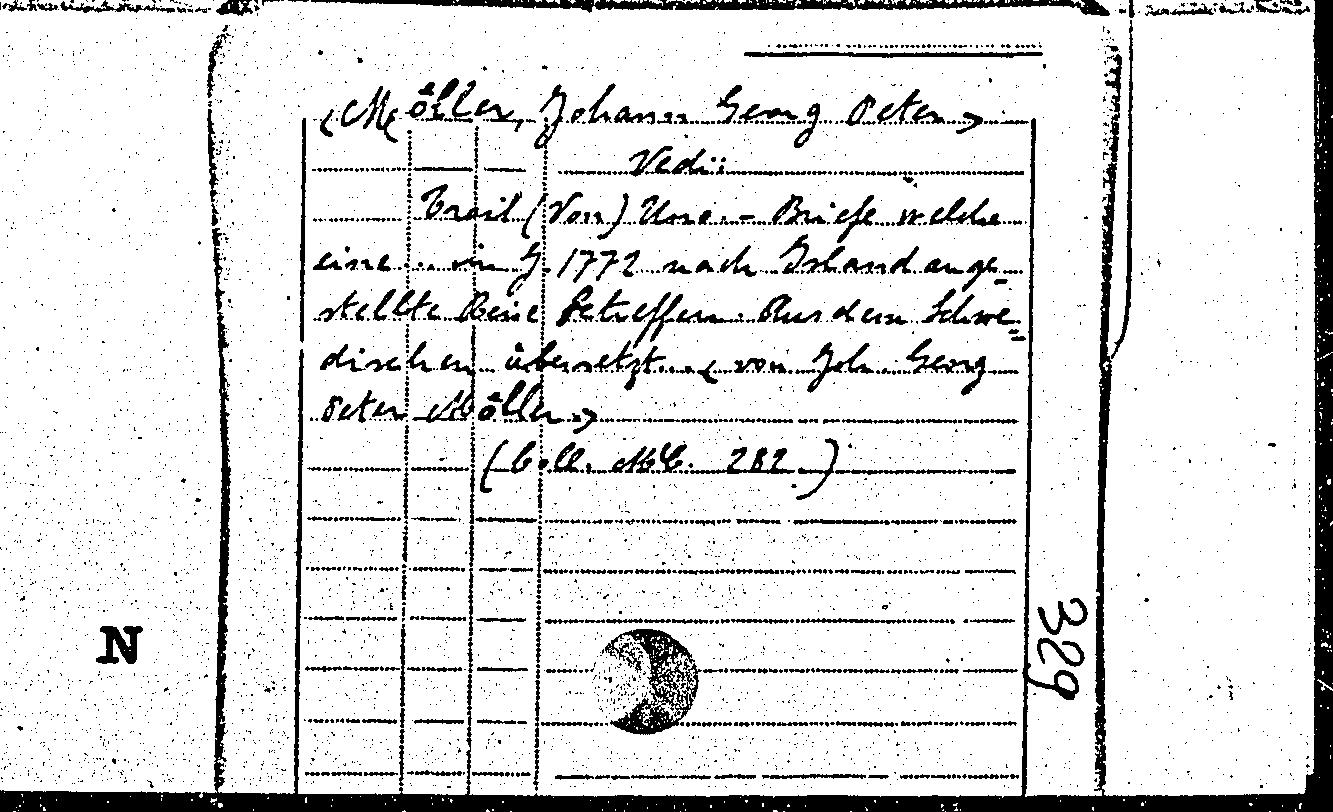 <Möller, Johann Georg Peter>
Vedi:
Troil (Von) Uno. - Briefe welche
eine... im J. 1772 nach Island ange-
stellte Reise betreffen. Aus dem Schwe=
dischen übersetzt... < von Joh. Georg
Peter Möller >
(Coll. MC. 282.)
N
329